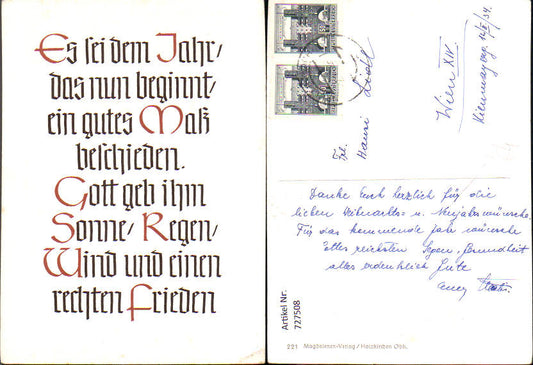 Es sei dem Jahr/
das nun beginnt/
ein gutes Maß
beschieden.
Gott geb ihm
Sonne/Regen/
Wind und einen
rechten Frieden
Frl.
Hansi
Wien XIV
Danke Euch herzlich für die
lieben Weihnachts- u. Neujahrswünsche.
Für das kommende Jahr wünsche
alles erdenklich Gute
Artikel Nr.
727508
221 Magdalenen-Verlag / Holzkirchen Obb.